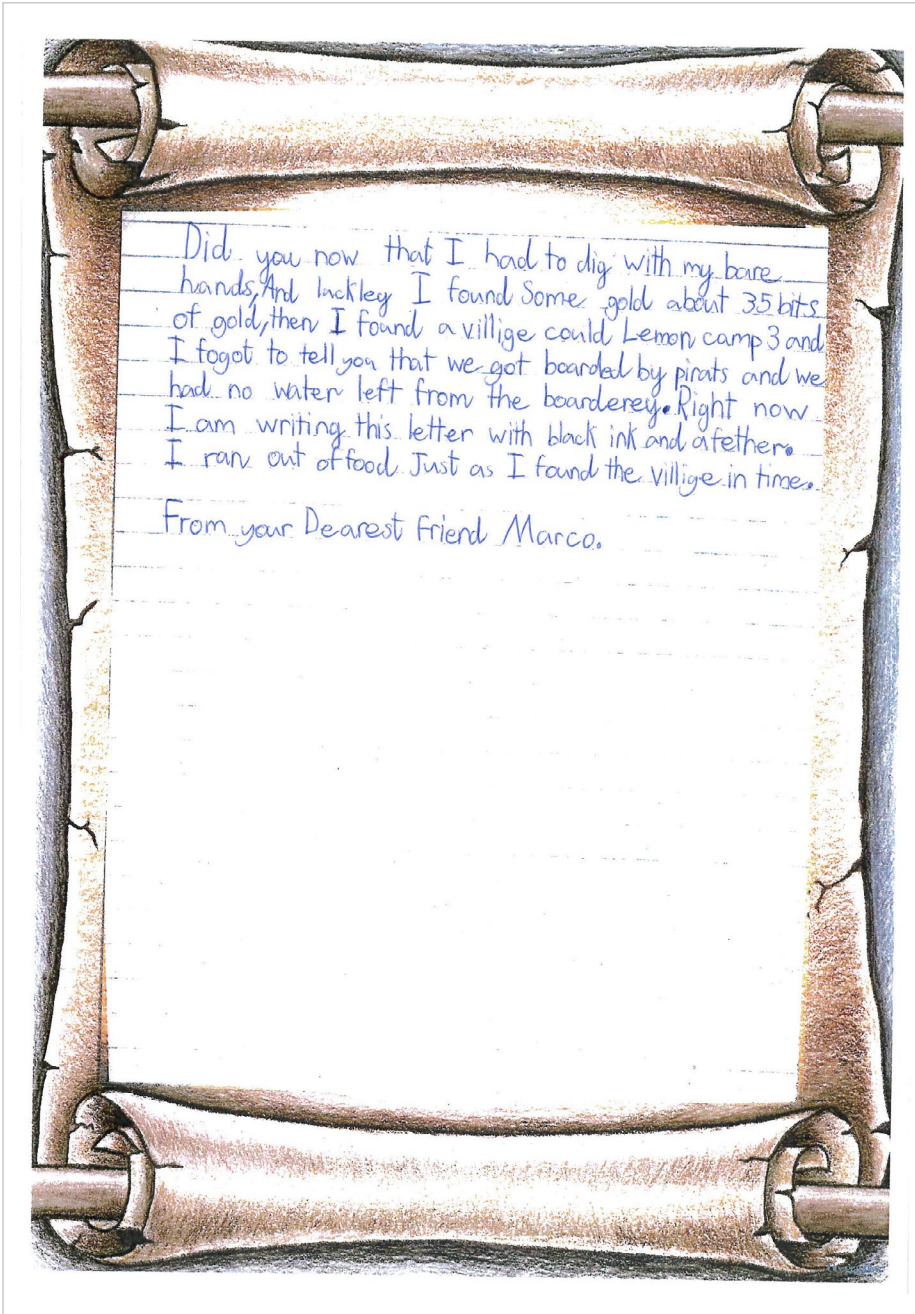 Did you now that I had to dig with my bare
hands, And lackley I found Some gold about 35 bits
of gold, then I found a villige could Lemon camp 3 and
I fogot to tell you that we got boarded by pirats and we
had no water left from the boarderey. Right now
I am writing this letter with black ink and a fether.
I ran out of food Just as I found the villige in time.
From your Dearest friend Marco.